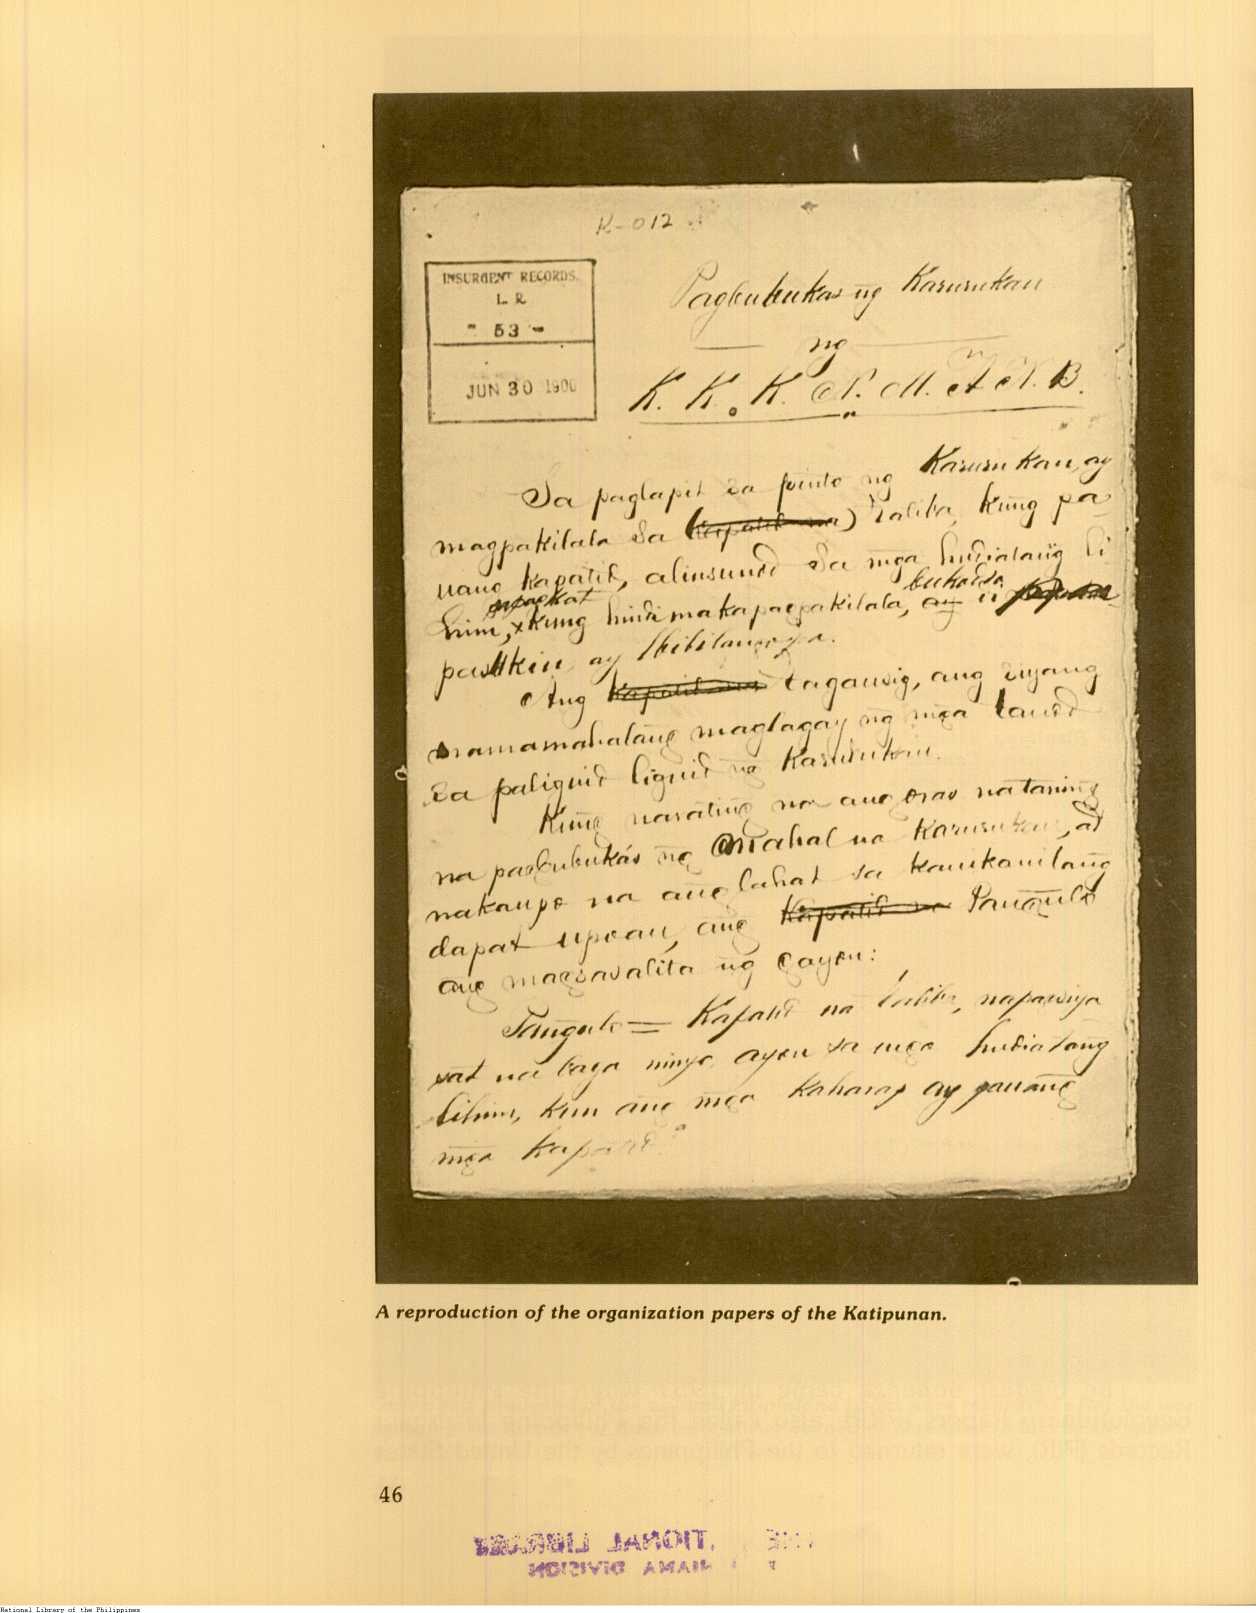 K-012
INSURGENT RECORDS.
L. R.
- 53 -
JUN 30 1900
Pagbubukas ng Karurukan
ng
K. K. K. N. M. A N. B.
Sa paglapit sa pinto ng Karurukan, ay
magpakilala sa (Kapatid na) Taliba, kung pa
nang kapatid, alinsunod sa mga hudiatang li
him, kung hindi makapagpakilala, ay
ay
Ang Kapatid na taganwig, ang siyang
mamamahalang maglagay ng mga tanod
sa paliguid liguid ng Karurukan.
Kung narating na ang oras na taning
na pagbubukás ng mahal na Karurukan, at
nakaupo na ang lahat sa kanikanilang
dapat upoan, ang Kapatid na Pangulo
ang magsasalita ng gayon:
Pangulo = Kapatid na taliba,
na baga ninyo ayon sa mga hudiatang
lihim, kun ang mga kaharap ay panang
mga kapatid?
A reproduction of the organization papers of the Katipunan.
46
National Library of the Philippines